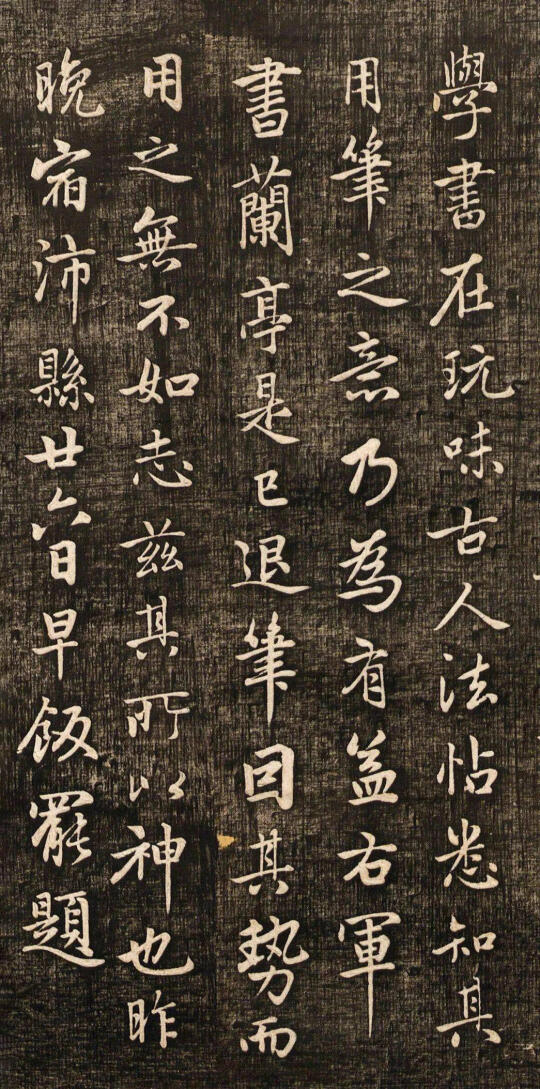 學書在玩味古人法帖悉知其
用筆之意乃為有益右軍
書蘭亭是已退筆回其勢而
用之無不如志茲其所以神也昨
晚宿沛縣廿六日早飯罷題